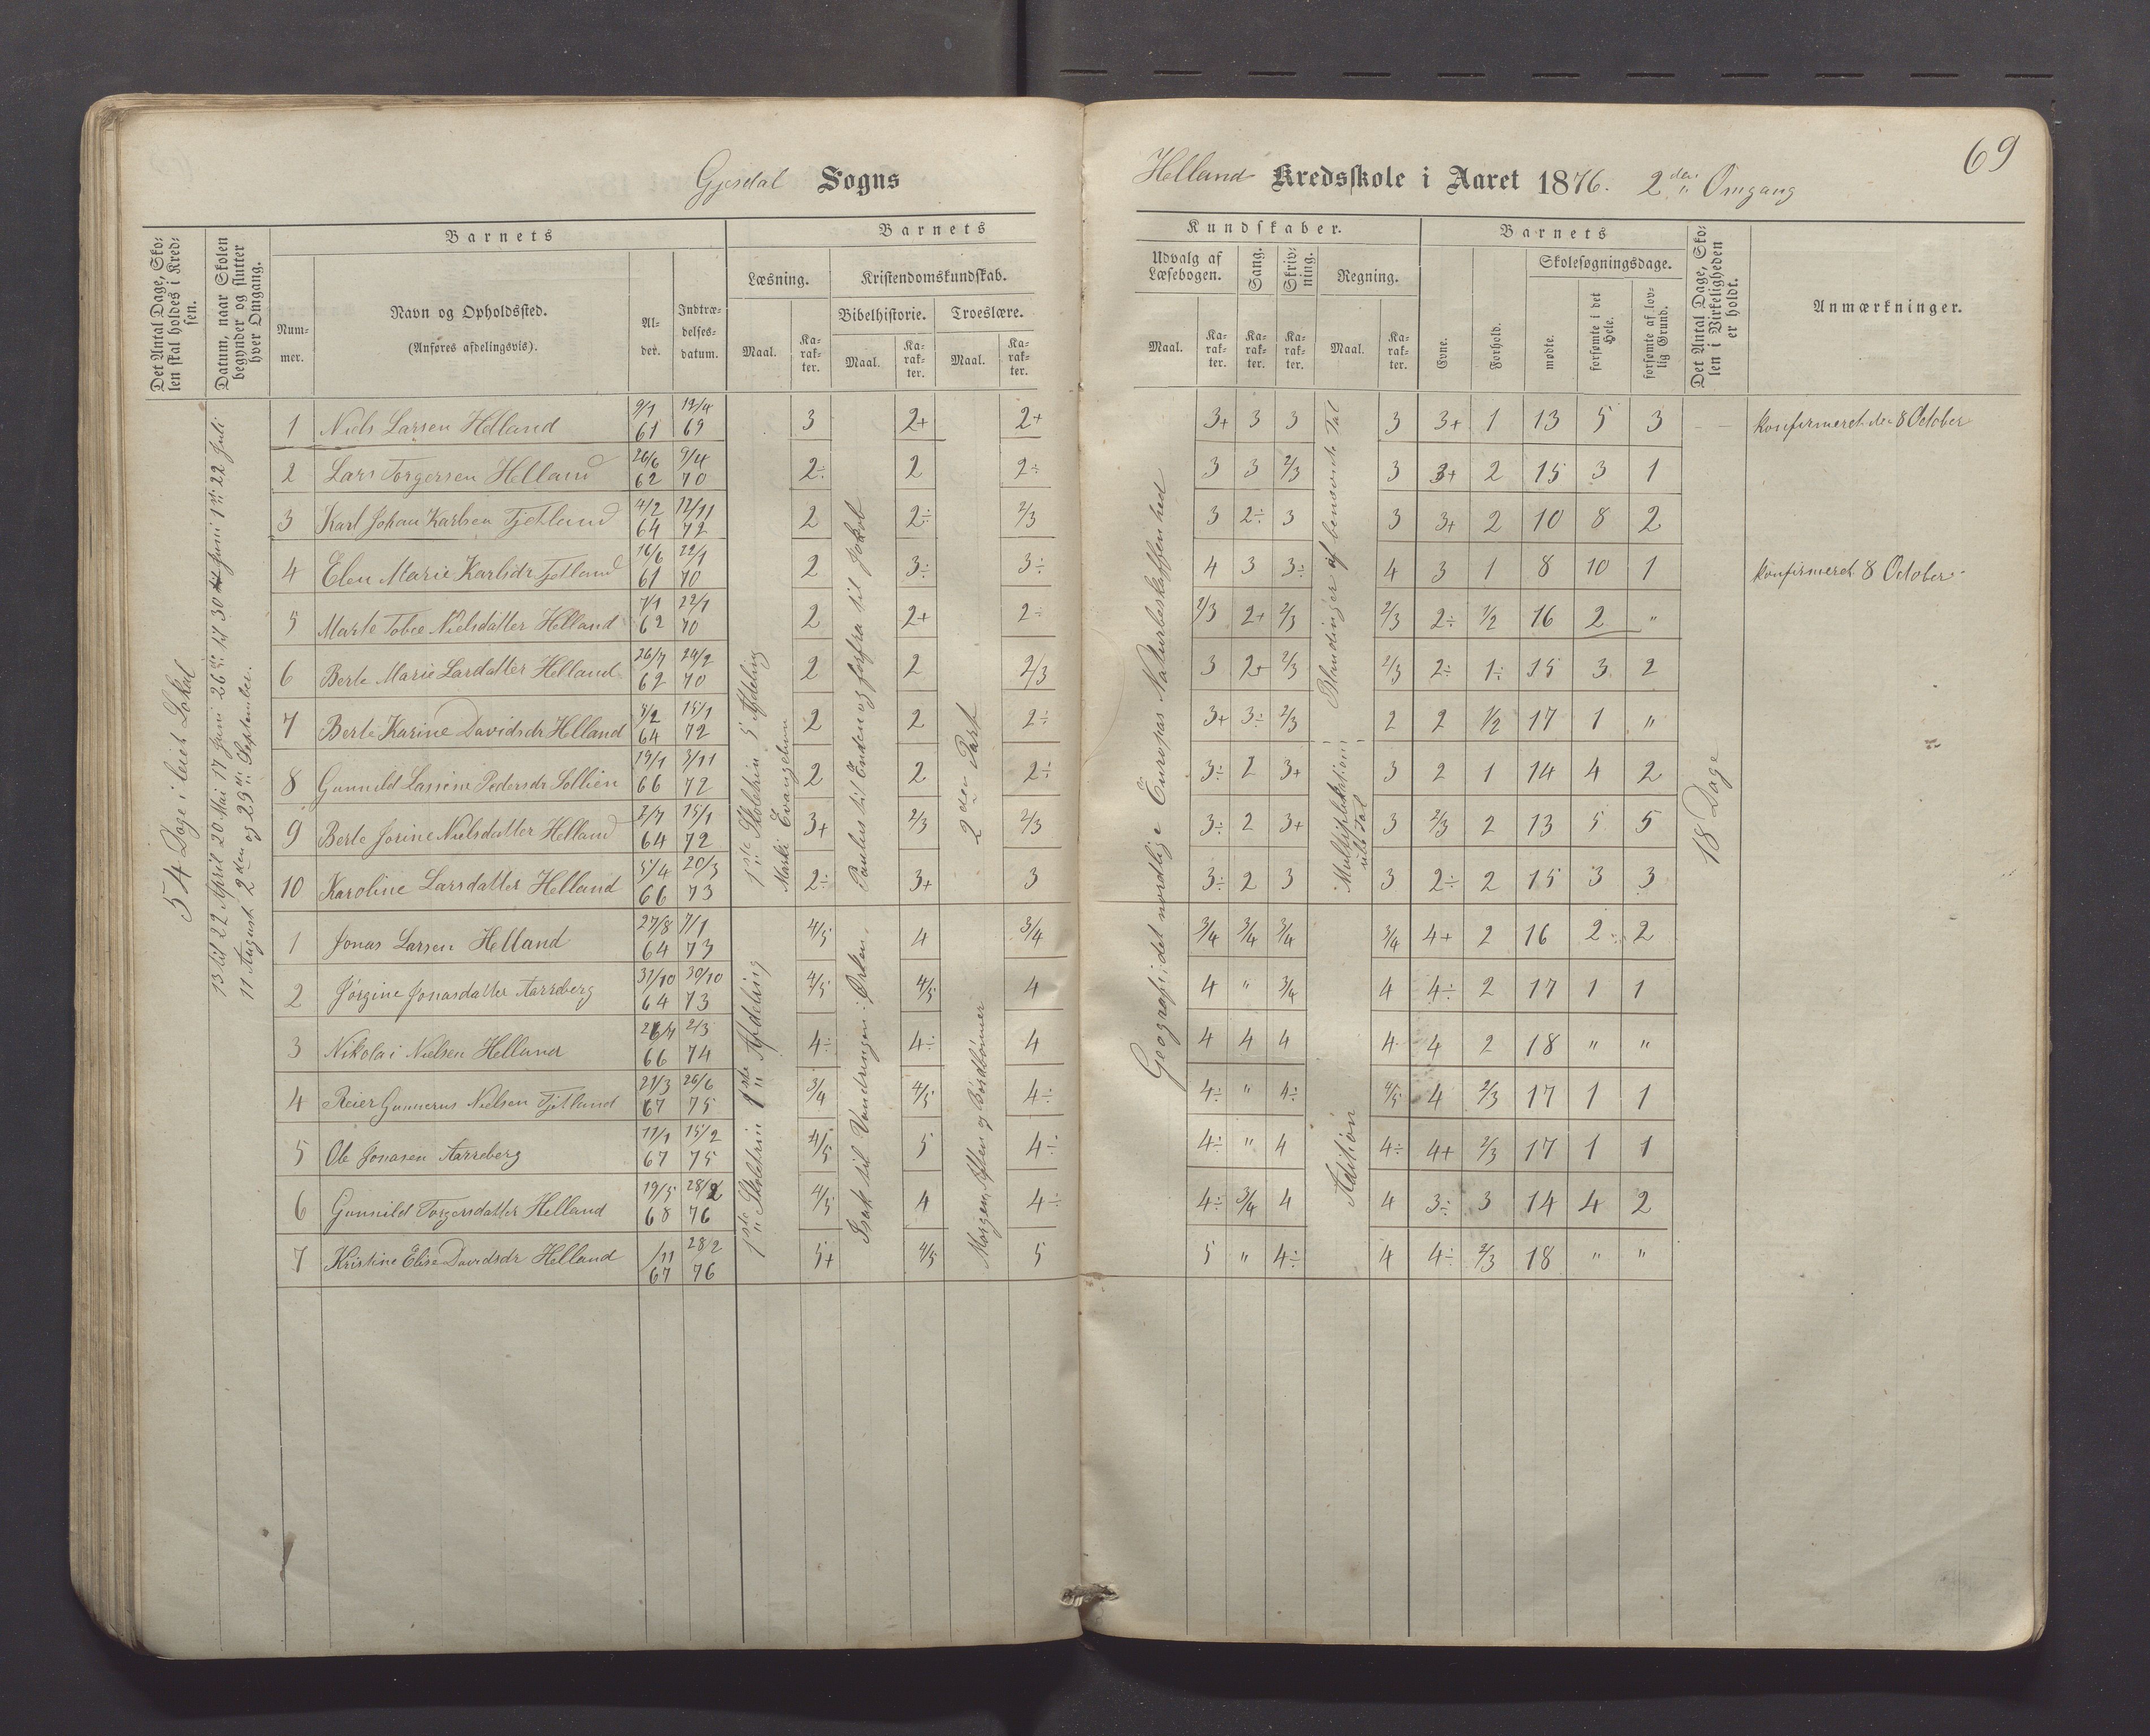 Gjesdal Sogns
Helland Kredsskole i Aaret 1876. 2den Omgang
69
Det Antal Dage, Sko-
len skal holdes i Kred-
sen.
Datum, naar Skolen
begynder og slutter
hver Omgang.
Barnets
Num-
mer.
Navn og Opholdssted.
(Anføres afdelingsvis).
Al-
der.
Indtræ-
delses-
datum.
Barnets
Læsning.
Maal.
Ka-
rak-
ter.
Kristendomskundskab.
Bibelhistorie.
Maal.
Ka-
rak-
ter.
Troeslære.
Maal.
Ka-
rak-
ter.
Kundskaber.
Udvalg af
Læsebogen.
Maal.
Ka-
rak-
ter.
Sang.
Ka-
rak-
ter.
Skriv-
ning.
Ka-
rak-
ter.
Regning.
Maal.
Ka-
rak-
ter.
Barnets
Evne.
Forhold.
Skolesøgningsdage.
mødte.
forsømte i det
Hele.
forsømte af lov-
lig Grund.
Det Antal Dage, Sko-
len i Virkeligheden
er holdt.
Anmærkninger.
54 Dage i leiet Lokal
13 til 22 April 20 Mai 17 Juni 26de til 30 Juni 1ste 22 Juli
11 August 2den og 29de September.
1ste Skoletrin 5 Afdeling
Marki Evangelium
Paulus til Enden og forfra til Jakob
2den Part
Geografi; det nordlige Europas Naturbeskaffenhed
Blandinger af benævnte Tal
Multiplikation i
ub. Tal
18 Dage
1 Niels Larsen Helland 9/1 61 19/4 69 3 2+ 2+ 3+ 3 3 3 3+ 1 13 5 3 konfirmeret den 8 October
2 Lars Torgersen Helland 26/6 62 9/4 70 2÷ 2 2÷ 3 3 2/3 3 3+ 2 15 3 1
3 Karl Johan Karlsen Fjetland 4/2 64 12/11 72 2 2÷ 2/3 3 2÷ 3 3 3+ 2 10 8 2
4 Elen Marie Karlsdr Fjetland 16/6 61 22/1 70 2 3÷ 3÷ 4 3 3÷ 4 3 1 8 10 1 konfirmeret 8 October
5 Marte Tobie Nielsdatter Helland 7/1 62 22/1 70 2 2+ 2÷ 2/3 2+ 2/3 2/3 2÷ 1/2 16 2 "
6 Berte Marie Larsdatter Helland 26/7 62 24/2 70 2 2 2/3 3 2+ 2/3 2/3 2÷ 1÷ 15 3 2
7 Berte Karine Davidsdr Helland 8/2 64 15/1 72 2 2 2÷ 3+ 3÷ 2/3 2 2 1/2 17 1 "
8 Gunnild Lassine Pedersdr Sollien 19/1 66 3/11 72 2 2 2÷ 3÷ 2 3+ 3 2 1 14 4 2
9 Berte Jorine Nielsdatter Helland 2/7 64 15/1 72 3+ 2/3 2/3 3÷ 2 3+ 3 2/3 2 13 5 5
10 Karoline Larsdatter Helland 5/4 66 20/3 73 2÷ 3+ 3 3÷ 2 3 3 2÷ 2 15 3 3
1ste Skoletrin 1ste Afdeling
Isak til Vandringen i Ørken.
Morgen, Aften og Bordbønner
Adition
1 Jonas Larsen Helland 27/8 64 7/1 73 4/5 4 3/4 3/4 3/4 3/4 3/4 4+ 2 16 2 2
2 Jørgine Jonasdatter Aarreberg 31/10 64 30/10 73 4/5 4/5 4 4 " 3/4 4 4÷ 2 17 1 1
3 Nikolai Nielsen Helland 26/4 66 2/3 74 4÷ 4÷ 4 4 4 4 4 4 2 18 " "
4 Reier Gunnerus Nielsen Fjetland 21/3 67 26/6 75 3/4 4/5 4÷ 4÷ " 4÷ 4/5 4 2/3 17 1 1
5 Ole Jonasen Aarreberg 11/1 67 15/2 75 4/5 5 4÷ 4÷ " 4 4÷ 4+ 2/3 17 1 1
6 Gunnild Torgersdatter Helland 19/5 68 28/2 76 4/5 4 4÷ 4÷ 3/4 4 4 3÷ 3 14 4 2
7 Kristine Elise Davidsdr Helland /11 67 28/2 76 5+ 4/5 5 5 " 4÷ 4 4÷ 2/3 18 " "